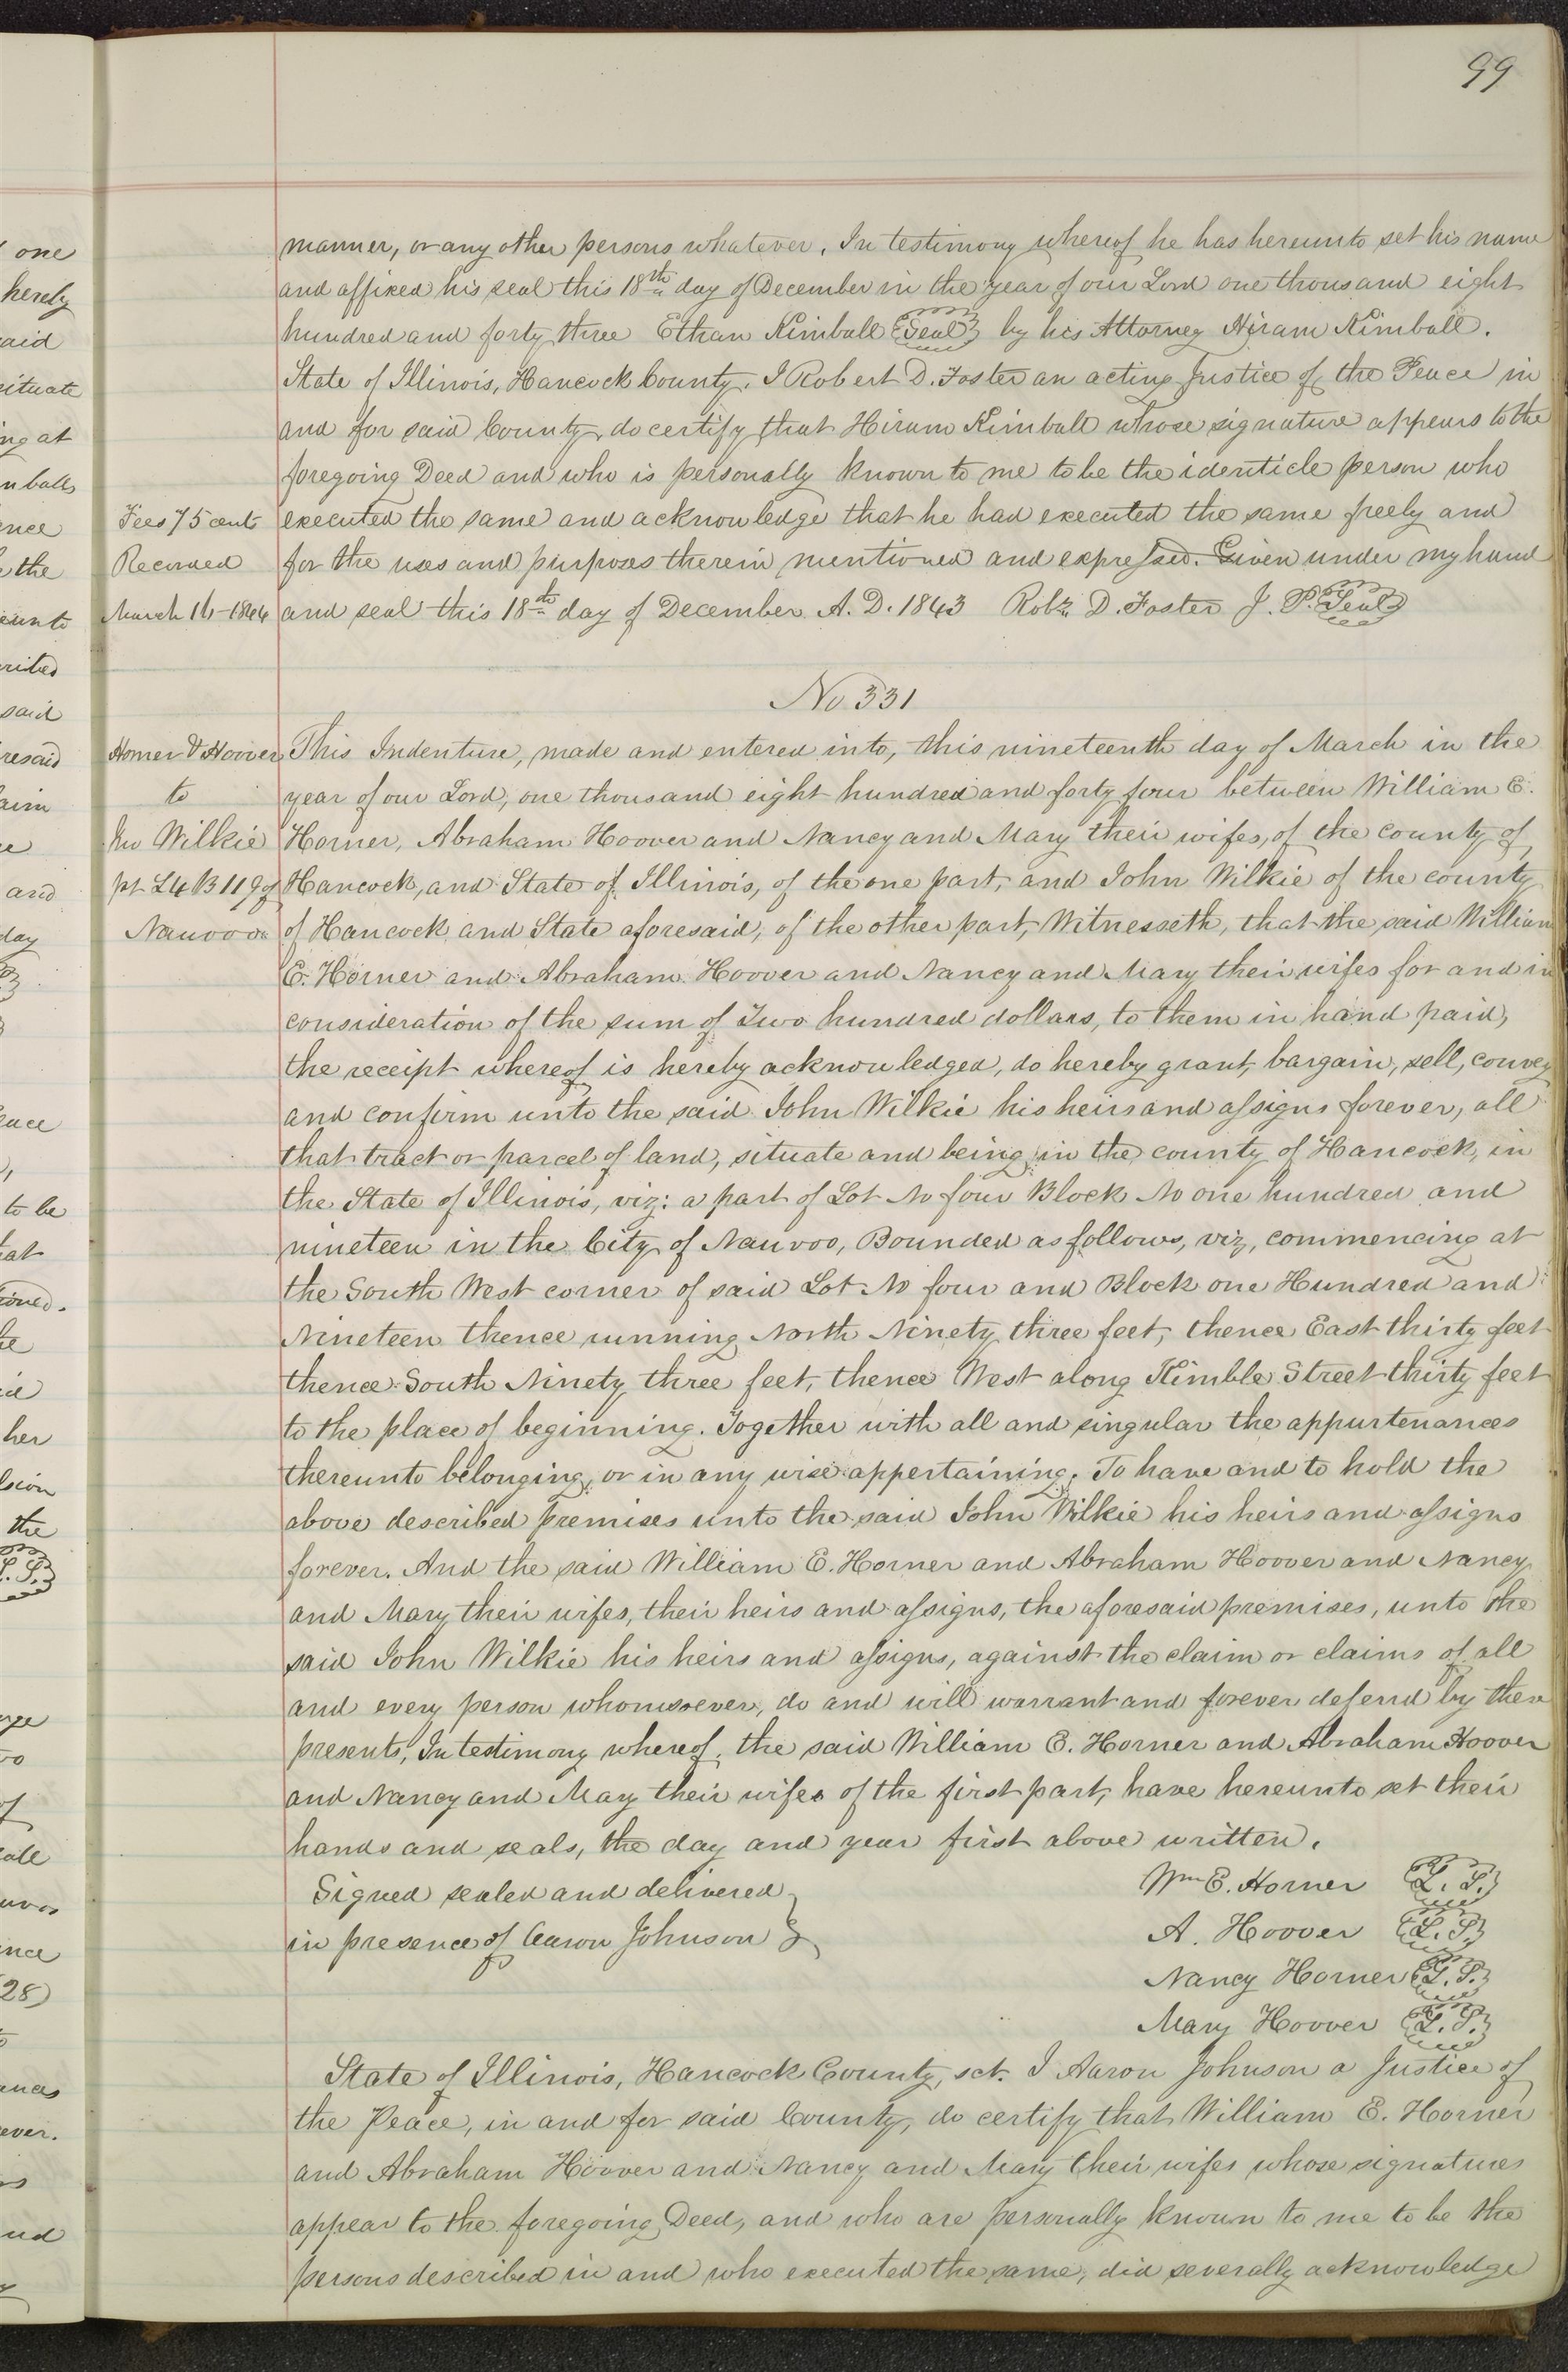 99
manner, or any other persons whatever. In testimony whereof he has hereunto set his name
and affixed his seal this 18th day of December in the year of our Lord one thousand eight
hundred and forty three Ethan Kimball Seal by his Attorney Hiram Kimball.
State of Illinois, Hancock County. I Robert D. Foster an acting Justice of the Peace in
and for said County, do certify that Hiram Kimball whose signature appears to the
foregoing Deed and who is personally known to me to be the identicle person who
Fees 75 cents executed the same and acknowledge that he had executed the same freely and
Recorded for the uses and purposes therein mentioned and expressed. Given under my hand
March 16-1844 and seal this 18th day of December A. D. 1843 Robt. D. Foster J. P. Seal
No 331
Horner & Hoover This Indenture, made and entered into, this nineteenth day of March in the
to year of our Lord, one thousand eight hundred and forty four between William E.
Jno Wilkie Horner, Abraham Hoover and Nancy and Mary their wifes, of the county of
pt L4 B 119 of Hancock, and State of Illinois, of the one part, and John Wilkie of the county
Nauvoo of Hancock and State aforesaid, of the other part, Witnesseth, that the said William
E. Horner and Abraham Hoover and Nancy and Mary their wifes for and in
consideration of the sum of Two hundred dollars, to them in hand paid,
the receipt whereof is hereby acknowledged, do hereby grant, bargain, sell, convey
and confirm unto the said John Wilkie his heirs and assigns forever, all
that tract or parcel of land, situate and being in the county of Hancock, in
the State of Illinois, viz: a part of Lot No four Block No one hundred and
nineteen in the City of Nauvoo, Bounded as follows, viz, commencing at
the South West corner of said Lot No four and Block one Hundred and
Nineteen thence running North Ninety three feet, thence East thirty feet
thence South Ninety three feet, thence West along Kimble Street thirty feet
to the place of beginning. Together with all and singular the appurtenances
thereunto belonging, or in any wise appertaining. To have and to hold the
above described premises unto the said John Wilkie his heirs and assigns
forever. And the said William E. Horner and Abraham Hoover and Nancy
and Mary their wifes, their heirs and assigns, the aforesaid premises, unto the
said John Wilkie his heirs and assigns, against the claim or claims of all
and every person whomsoever, do and will warrant and forever defend by these
presents, In testimony whereof, the said William E. Horner and Abraham Hoover
and Nancy and May their wifes of the first part, have hereunto set their
hands and seals, the day and year first above written.
Signed sealed and delivered Wm E. Horner L. S.
in presence of Aaron Johnson A. Hoover L. S.
Nancy Horner L. S.
Mary Hoover L. S.
State of Illinois, Hancock County, sct. I Aaron Johnson a Justice of
the Peace, in and for said County, do certify that William E. Horner
and Abraham Hoover and Nancy and Mary their wifes whose signatures
appear to the foregoing Deed, and who are personally known to me to be the
persons described in and who executed the same, did severally acknowledge